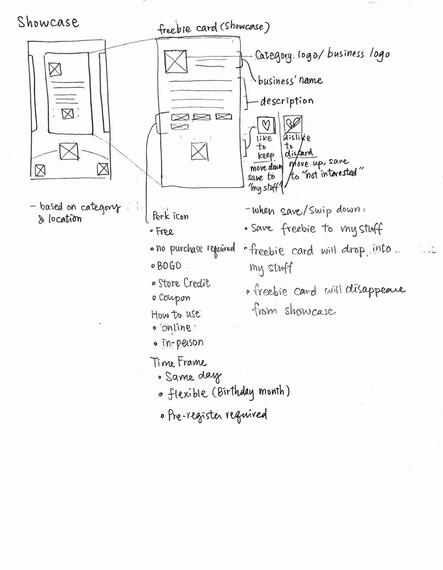 Showcase
freebie card (showcase)
Category logo/ business logo
business' name
description
like
to
keep
move down
save to
"my stuff"
dislike
to
discard
move up, save
to "not interested"
- based on category
& location
Perk icon
• Free
• no purchase required
• BOGO
• Store Credit
• Coupon
How to use
• online
• in-person
Time Frame
• Same day
• flexible (Birthday month)
• Pre-register required
- when save/swip down:
• Save freebie to my stuff
• freebie card will drop into
my stuff
• freebie card will disappear
from showcase